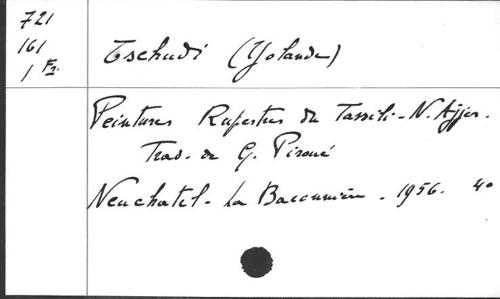 721
161
1 Fr.
Tschudi (Yolande)
Peintures Rupestres du Tassili-N.Ajjer.
Trad. de G. Piroué
Neuchatel - La Baconnière - 1956. 4°